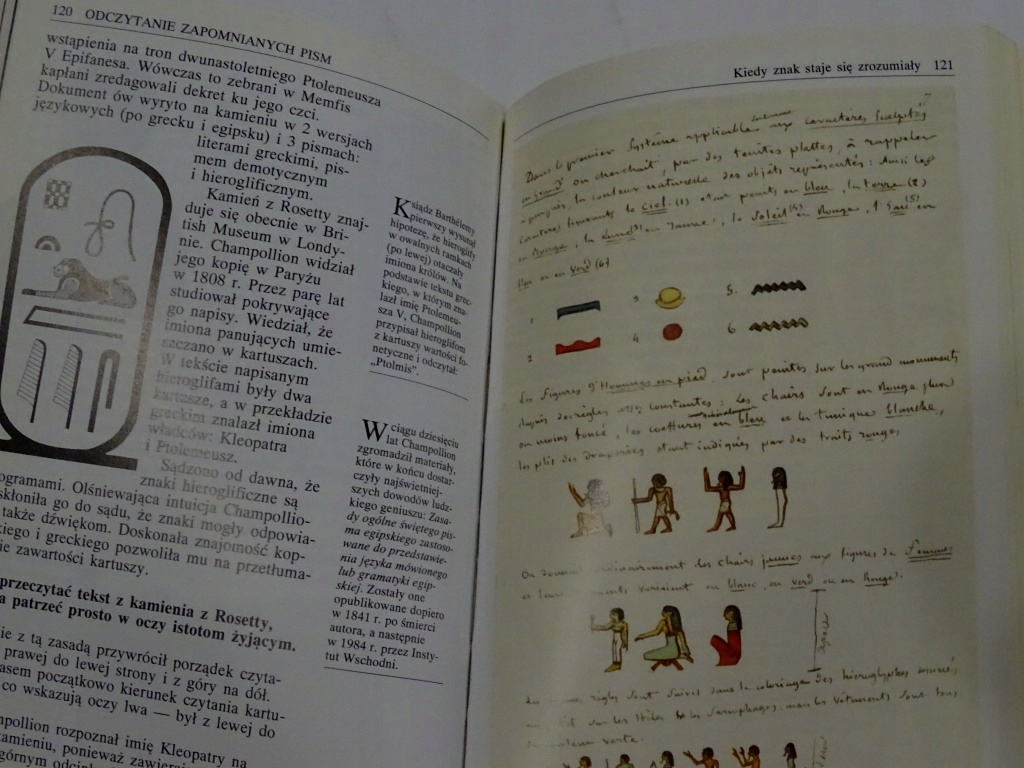 120 ODCZYTANIE ZAPOMNIANYCH PISM
wstąpienia na tron dwunastoletniego Ptolemeusza
V Epifanesa. Wówczas to zebrani w Memfis
kapłani zredagowali dekret ku jego czci.
Dokument ów wyryto na kamieniu w 2 wersjach
językowych (po grecku i egipsku) i 3 pismach:
literami greckimi, pis-
mem demotycznym
i hieroglificznym.
Kamień z Rosetty znaj-
duje się obecnie w Bri-
tish Museum w Londy-
nie. Champollion widział
jego kopię w Paryżu
w 1808 r. Przez parę lat
studiował pokrywające
go napisy. Wiedział, że
imiona panujących umie-
szczano w kartuszach.
W tekście napisanym
hieroglifami były dwa
kartusze, a w przekładzie
greckim znalazł imiona
władców: Kleopatra
i Ptolemeusz.
Sądzono od dawna, że
znaki hieroglificzne są
ogramami. Olśniewająca intuicja Champollio-
skłoniła go do sądu, że znaki mogły odpowia-
także dźwiękom. Doskonała znajomość kop-
kiego i greckiego pozwoliła mu na przetłuma-
ie zawartości kartuszy.
przeczytać tekst z kamienia z Rosetty,
a patrzeć prosto w oczy istotom żyjącym.
ie z tą zasadą przywrócił porządek czyta-
prawej do lewej strony i z góry na dół.
asem początkowo kierunek czytania kartu-
co wskazują oczy lwa — był z lewej do
mpollion rozpoznał imię Kleopatry na
kamieniu, ponieważ
górnym
Ksiądz Barthélemy
pierwszy wysunął
hipotezę, że hieroglify
w owalnych ramkach
(po lewej) otaczały
imiona królów. Na
podstawie tekstu grec-
kiego, w którym zna-
lazł imię Ptolemeu-
sza V, Champollion
przypisał hieroglifom
z kartuszy wartości fo-
netyczne i odczytał:
„Ptolmis”.
W ciągu dziesięciu
lat Champollion
zgromadził materiały,
które w końcu dostar-
czyły najświetniej-
szych dowodów ludz-
kiego geniuszu: Zasa-
dy ogólne świętego pis-
ma egipskiego zastoso-
wane do przedstawie-
nia języka mówionego
lub gramatyki egip-
skiej. Zostały one
opublikowane dopiero
w 1841 r. po śmierci
autora, a następnie
w 1984 r. przez Insty-
tut Wschodni.
Kiedy znak staje się zrozumiały 121
7
Dans le premier Système applicable aux caractères Sculptés
on cherchait, par des teintes plattes, à rappeler
la couleur naturelle des objets représentés: Ainsi les
figurants le Ciel (1) étant peints en bleu, la terre (2)
en Rouge, la Lune (3) en Jaune, le Soleil (4) en Rouge, l'Eau (5) en
bleu ou en Verd (6)
1 3 5.
2 4 6
Les figures d'Hommes en pied sont peintes sur les grand monuments
d'après des règles assez constantes: les chairs sont en Rouge plus
ou moins foncé, les coëffures en bleu et la tunique blanche,
les plis des draperies étant indiqués par des traits rouges
On donnait ordinairement des chairs jaunes aux figures de femmes
et leurs vêtements varaient en blanc, en verd ou en Rouge.
règles sont suivies dans le coloriage des hieroglyphes
sur les Stèles et les Sarcophages. mais les vêtements sont tous
couleur verte.